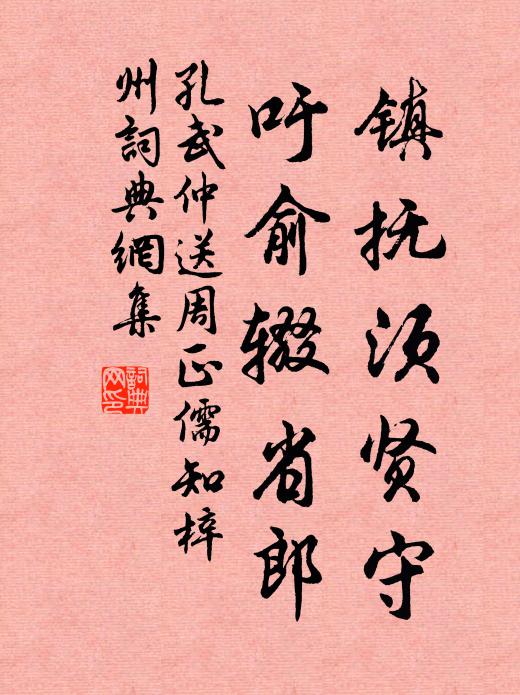 镇抚须贤守
吁俞辍省郎
孔武仲送周正儒知梓
州詞典網集
詞典
网印